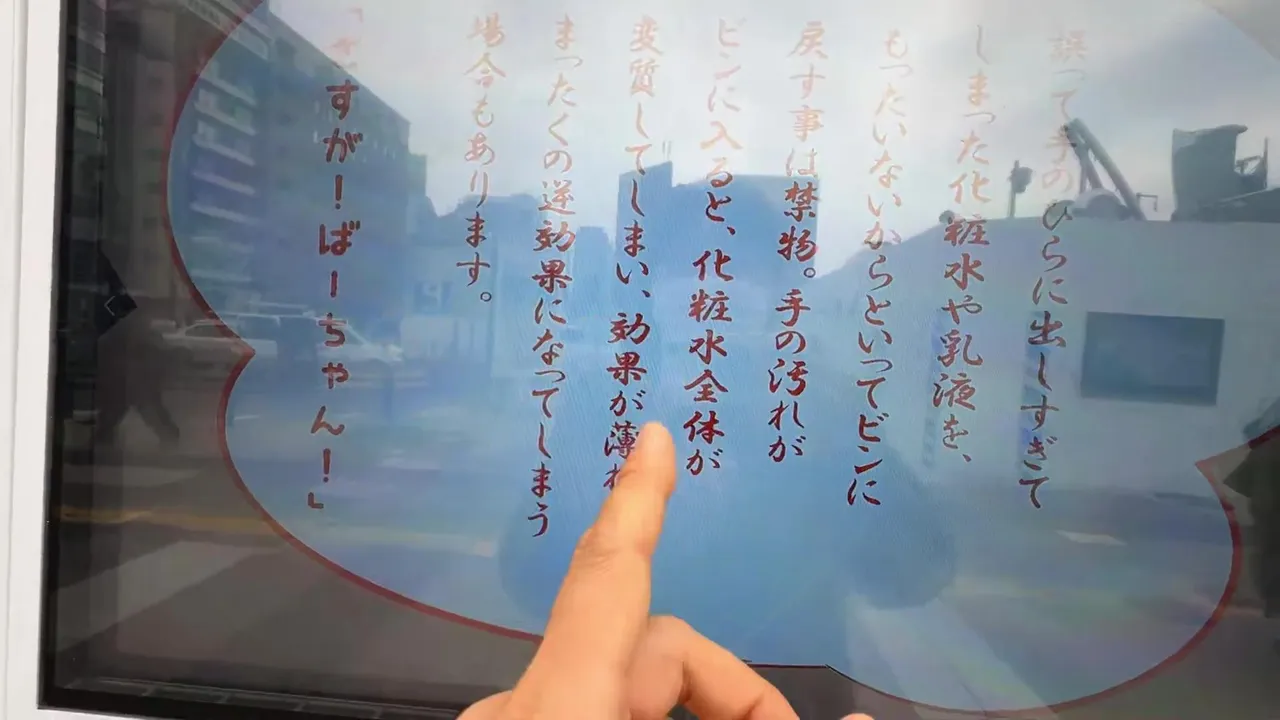 誤って手のひらに出しすぎて
しまった化粧水や乳液を、
もったいないからといってビンに
戻す事は禁物。手の汚れが
ビンに入ると、化粧水全体が
変質してしまい、効果が薄
まったくの逆効果になってしまう
場合もあります。
「さすが！ばーちゃん！」